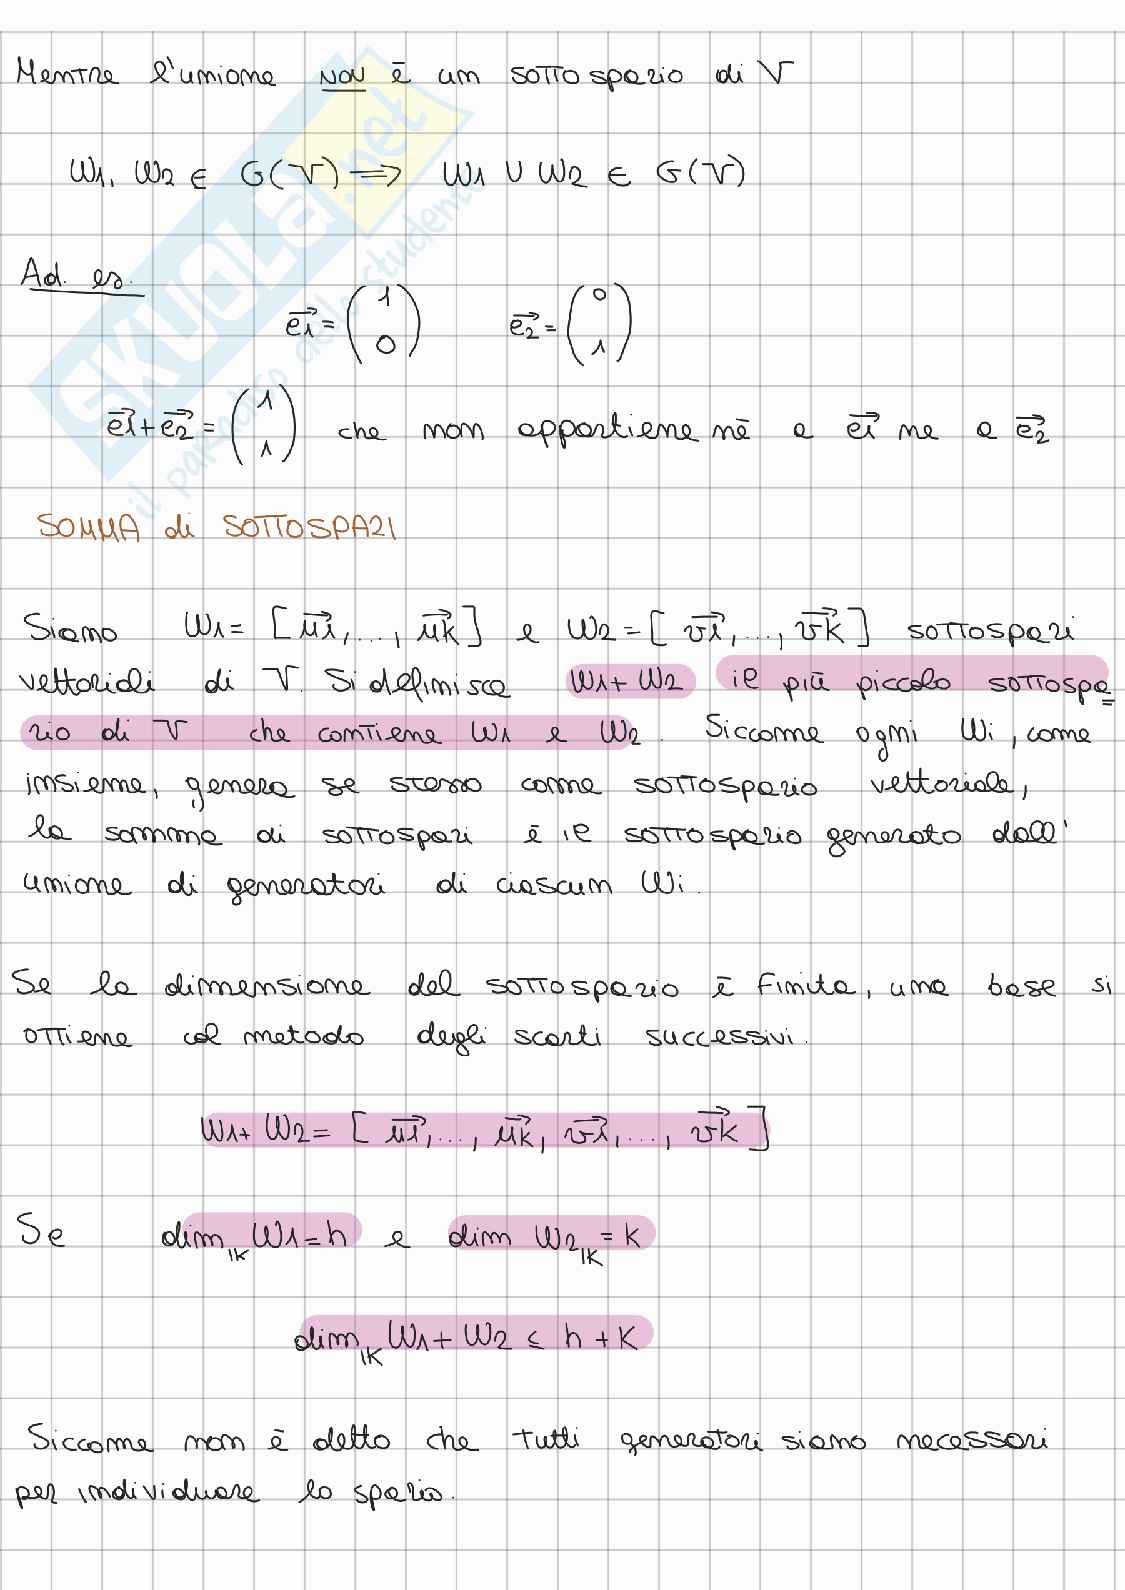 Mentre l'unione NON è un sottospazio di V
W1, W2 ∈ G(V) ⟹ W1 ∪ W2 ∈ G(V)
Ad. es.
e1 = (1 0) e2 = (0 1)
e1 + e2 = (1 1) che non appartiene nè a e1 ne a e2
SOMMA di SOTTOSPAZI
Siano W1 = [u1, ..., uk] e W2 = [v1, ..., vk] sottospazi
vettoriali di V. Si definisce W1 + W2 il più piccolo sottospa=
zio di V che contiene W1 e W2. Siccome ogni Wi, come
insieme, genera se stesso come sottospazio vettoriale,
la somma di sottospazi è il sottospazio generato dall'
unione di generatori di ciascun Wi.
Se la dimensione del sottospazio è finita, una base si
ottiene col metodo degli scarti successivi.
W1 + W2 = [u1, ..., uk, v1, ..., vk]
Se dim IK W1 = h e dim W2 IK = k
dim IK W1 + W2 ≤ h + k
Siccome non è detto che tutti generatori siano necessari
per individuare lo spazio.
SKUOLA.net
il paradiso dello studente